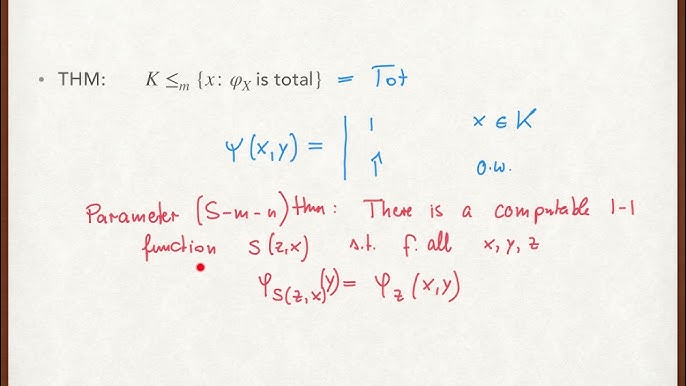 • THM: K ≤ₘ {x: φ_X is total} = Tot
ψ(x,y) = | 1 x ∈ K
↑ o.w.
Parameter (S-m-n) thm: There is a computable 1-1
function S(z,x) s.t. f. all x, y, z
φ_S(z,x)(y) = φ_z(x,y)